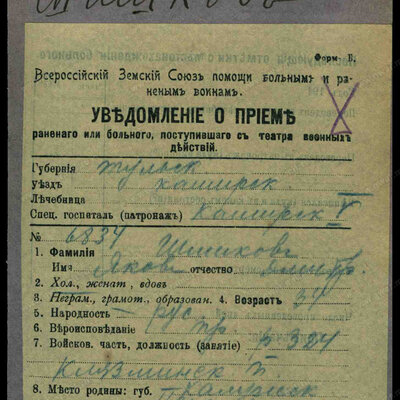 Форм. Б.
Всероссійскій Земскій Союзъ помощи больнымъ и ра-
ненымъ воинамъ.
УВѢДОМЛЕНІЕ О ПРІЕМѢ
раненаго или больного, поступившаго съ театра военныхъ
дѣйствій.
Губернія Тульск
Уѣздъ каширск.
Лѣчебница
Спец. госпиталь (патронажъ) Каширск V
№ 6834
1. Фамилія
Имя Яковъ отчество
2. Хол., женат, вдовъ
3. Неграм., грамот., образован. 4. Возрастъ 34
5. Народность рус.
6. Вѣроисповѣданіе пр.
7. Войсков. часть, должность (занятіе) п 324
Клязминск п.
8. Мѣсто родины: губ.